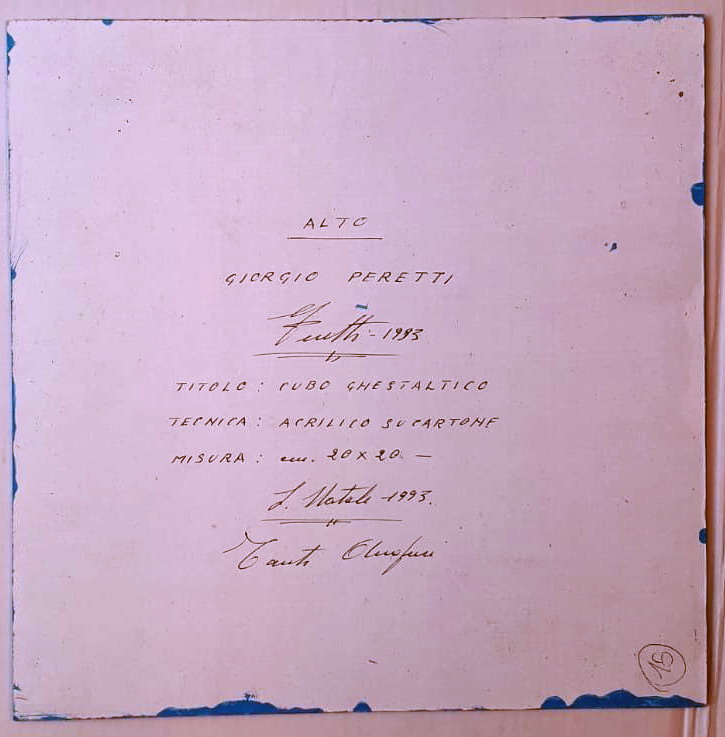 ALTO
GIORGIO PERETTI
G Peretti - 1993
TITOLO: CUBO GHESTALTICO
TECNICA: ACRILICO SU CARTONE
MISURA: cm. 20 x 20 —
S. Natale - 1993.
Tanti Auguri